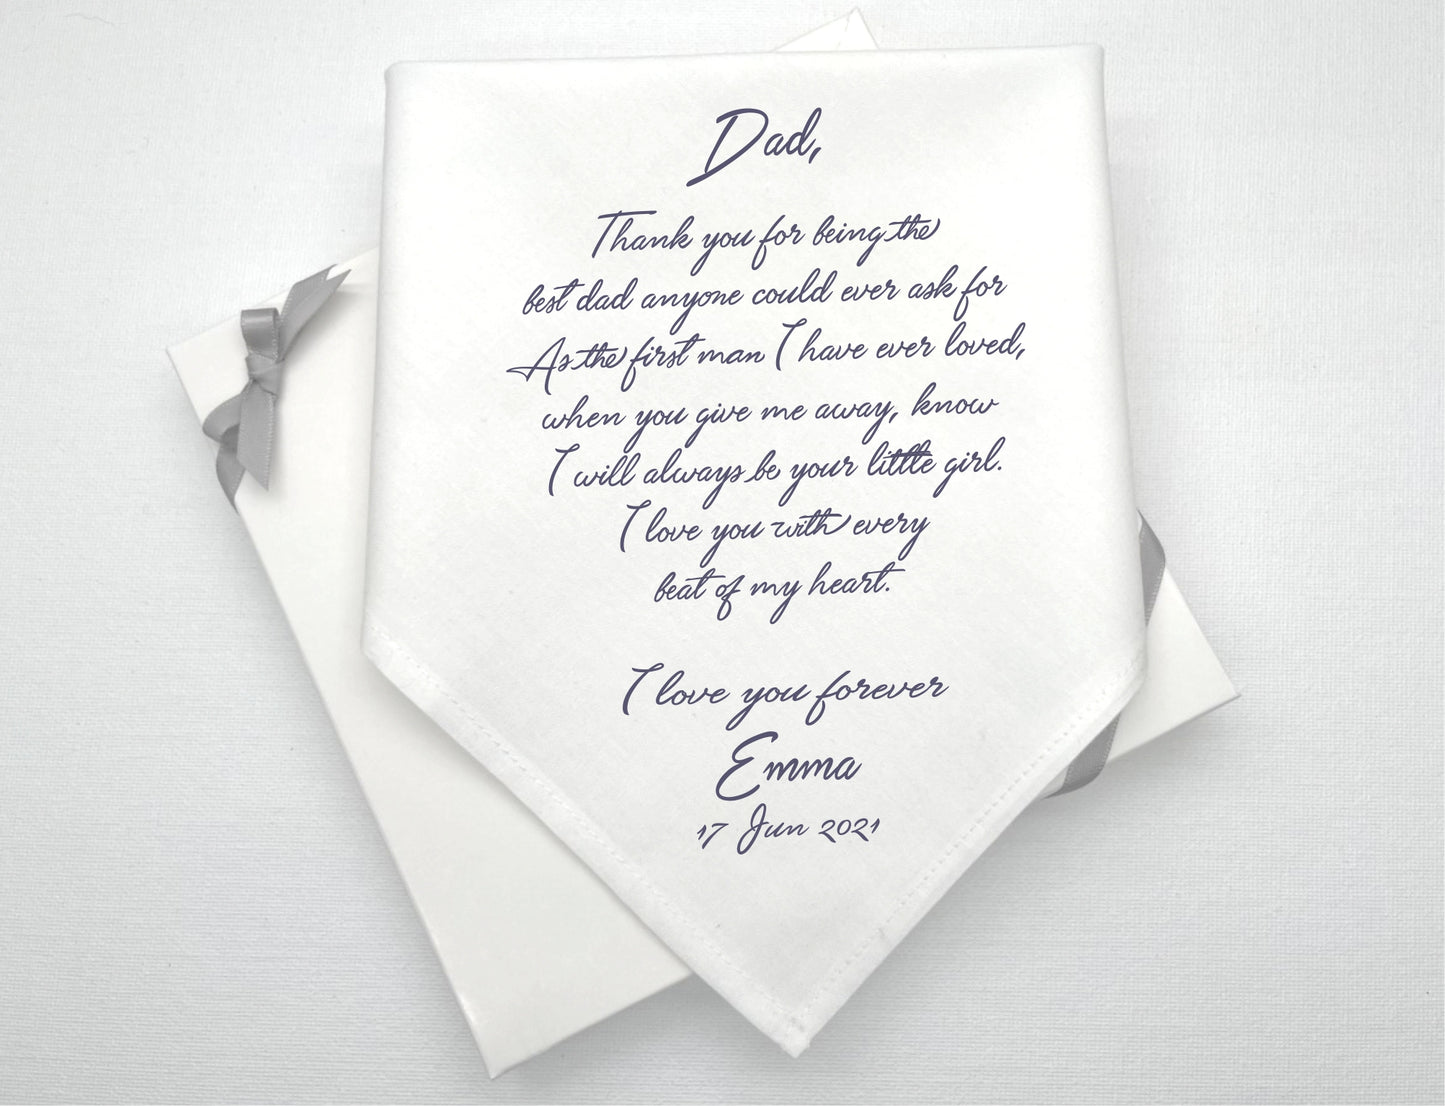 Dad,
Thank you for being the
best dad anyone could ever ask for
As the first man I have ever loved,
when you give me away, know
I will always be your little girl.
I love you with every
beat of my heart.
I love you forever
Emma
17 Jun 2021